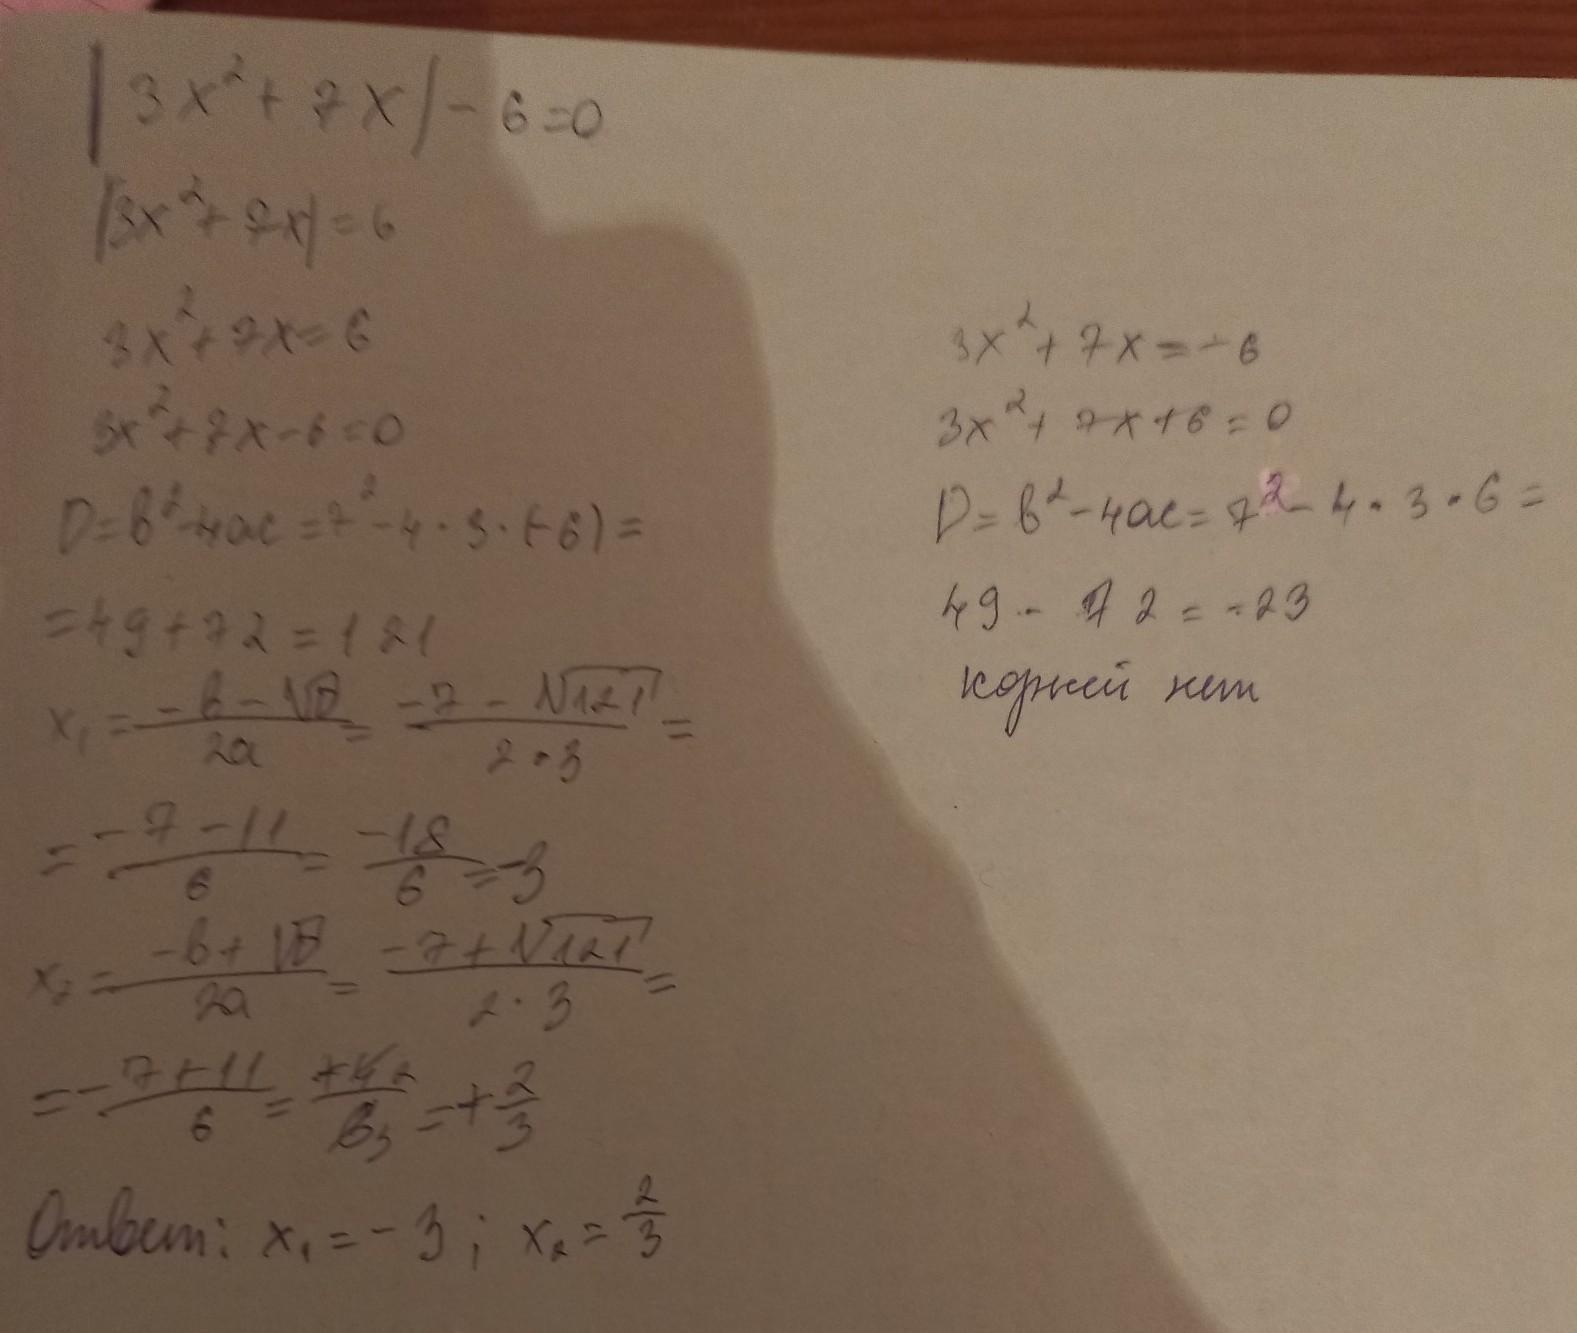 |3x² + 7x| - 6 = 0
|3x² + 7x| = 6
3x² + 7x = 6
3x² + 7x - 6 = 0
D = b² - 4ac = 7² - 4 · 3 · (-6) =
= 49 + 72 = 121
x₁ = (-b - √D)/(2a) = (-7 - √121)/(2 · 3) =
= (-7 - 11)/6 = (-18)/6 = -3
x₂ = (-b + √D)/(2a) = (-7 + √121)/(2 · 3) =
= (-7 + 11)/6 = (+4 2)/(6 3) = + 2/3
Ответ: x₁ = -3; x₂ = 2/3
3x² + 7x = -6
3x² + 7x + 6 = 0
D = b² - 4ac = 7² - 4 · 3 · 6 =
49 - 72 = -23
корней нет